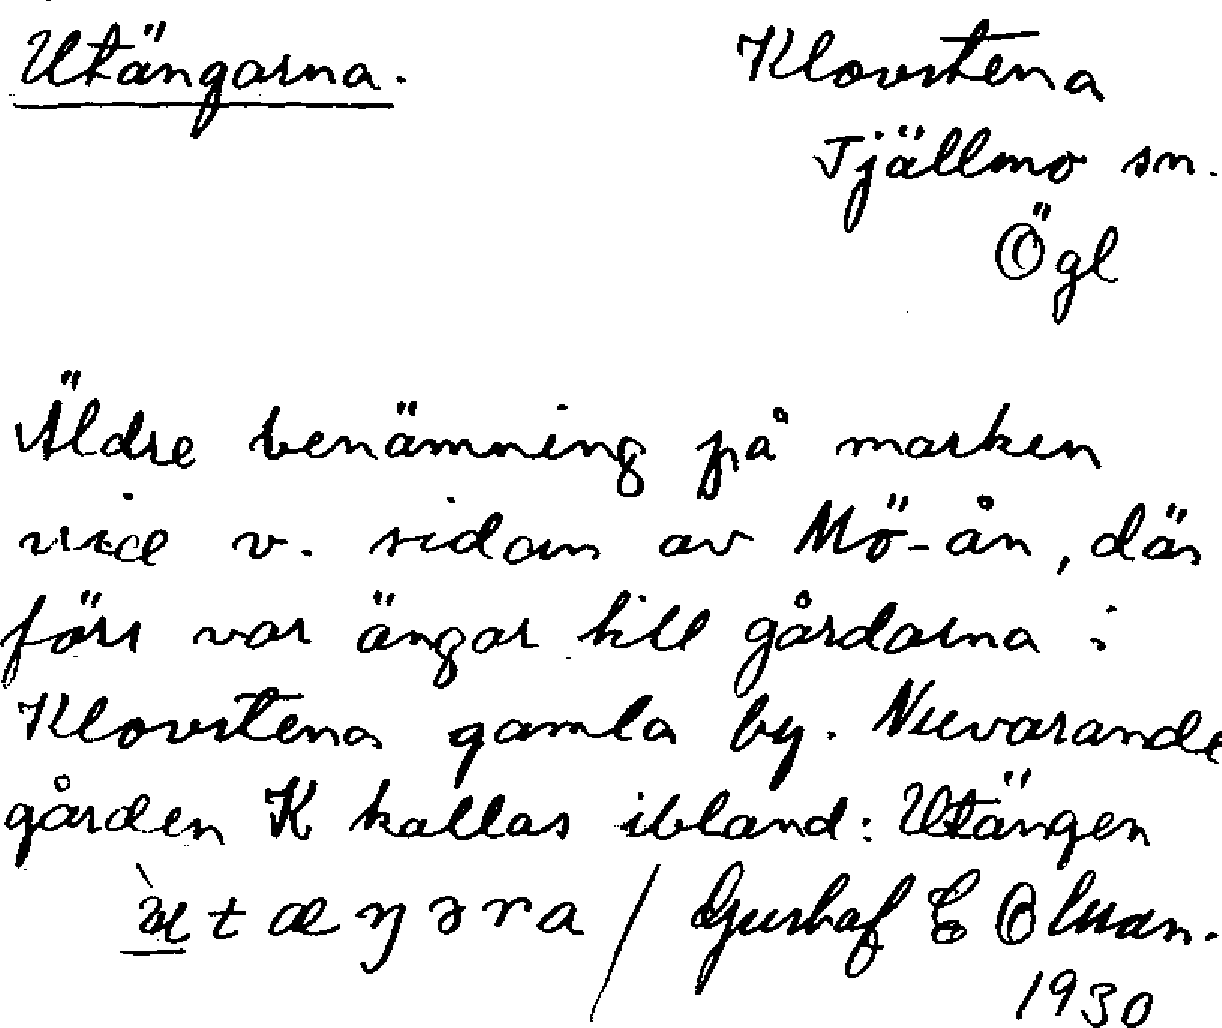 Utängarna.
Klovstena
Tjällmo sn.
Ögl
Äldre benämning på marken
vid v. sidan av Mö-ån, där
förr var ängar till gårdarna i
Klovstena gamla by. Nuvarande
gården K kallas ibland: Utängen
ù̳tæŋɘra / Gustaf E Olsson.
1930